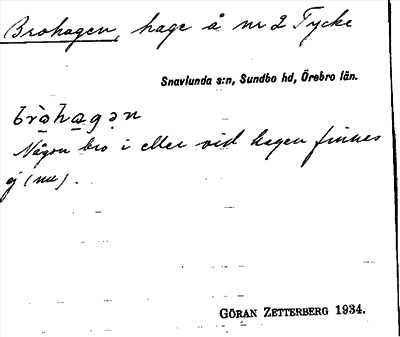 Brohagen, hage å nr 2 Tycke
Snavlunda s:n, Sundbo hd, Örebro län.
bròhagən
Någon bro i eller vid hagen finnes
ej (nu).
GÖRAN ZETTERBERG 1934.